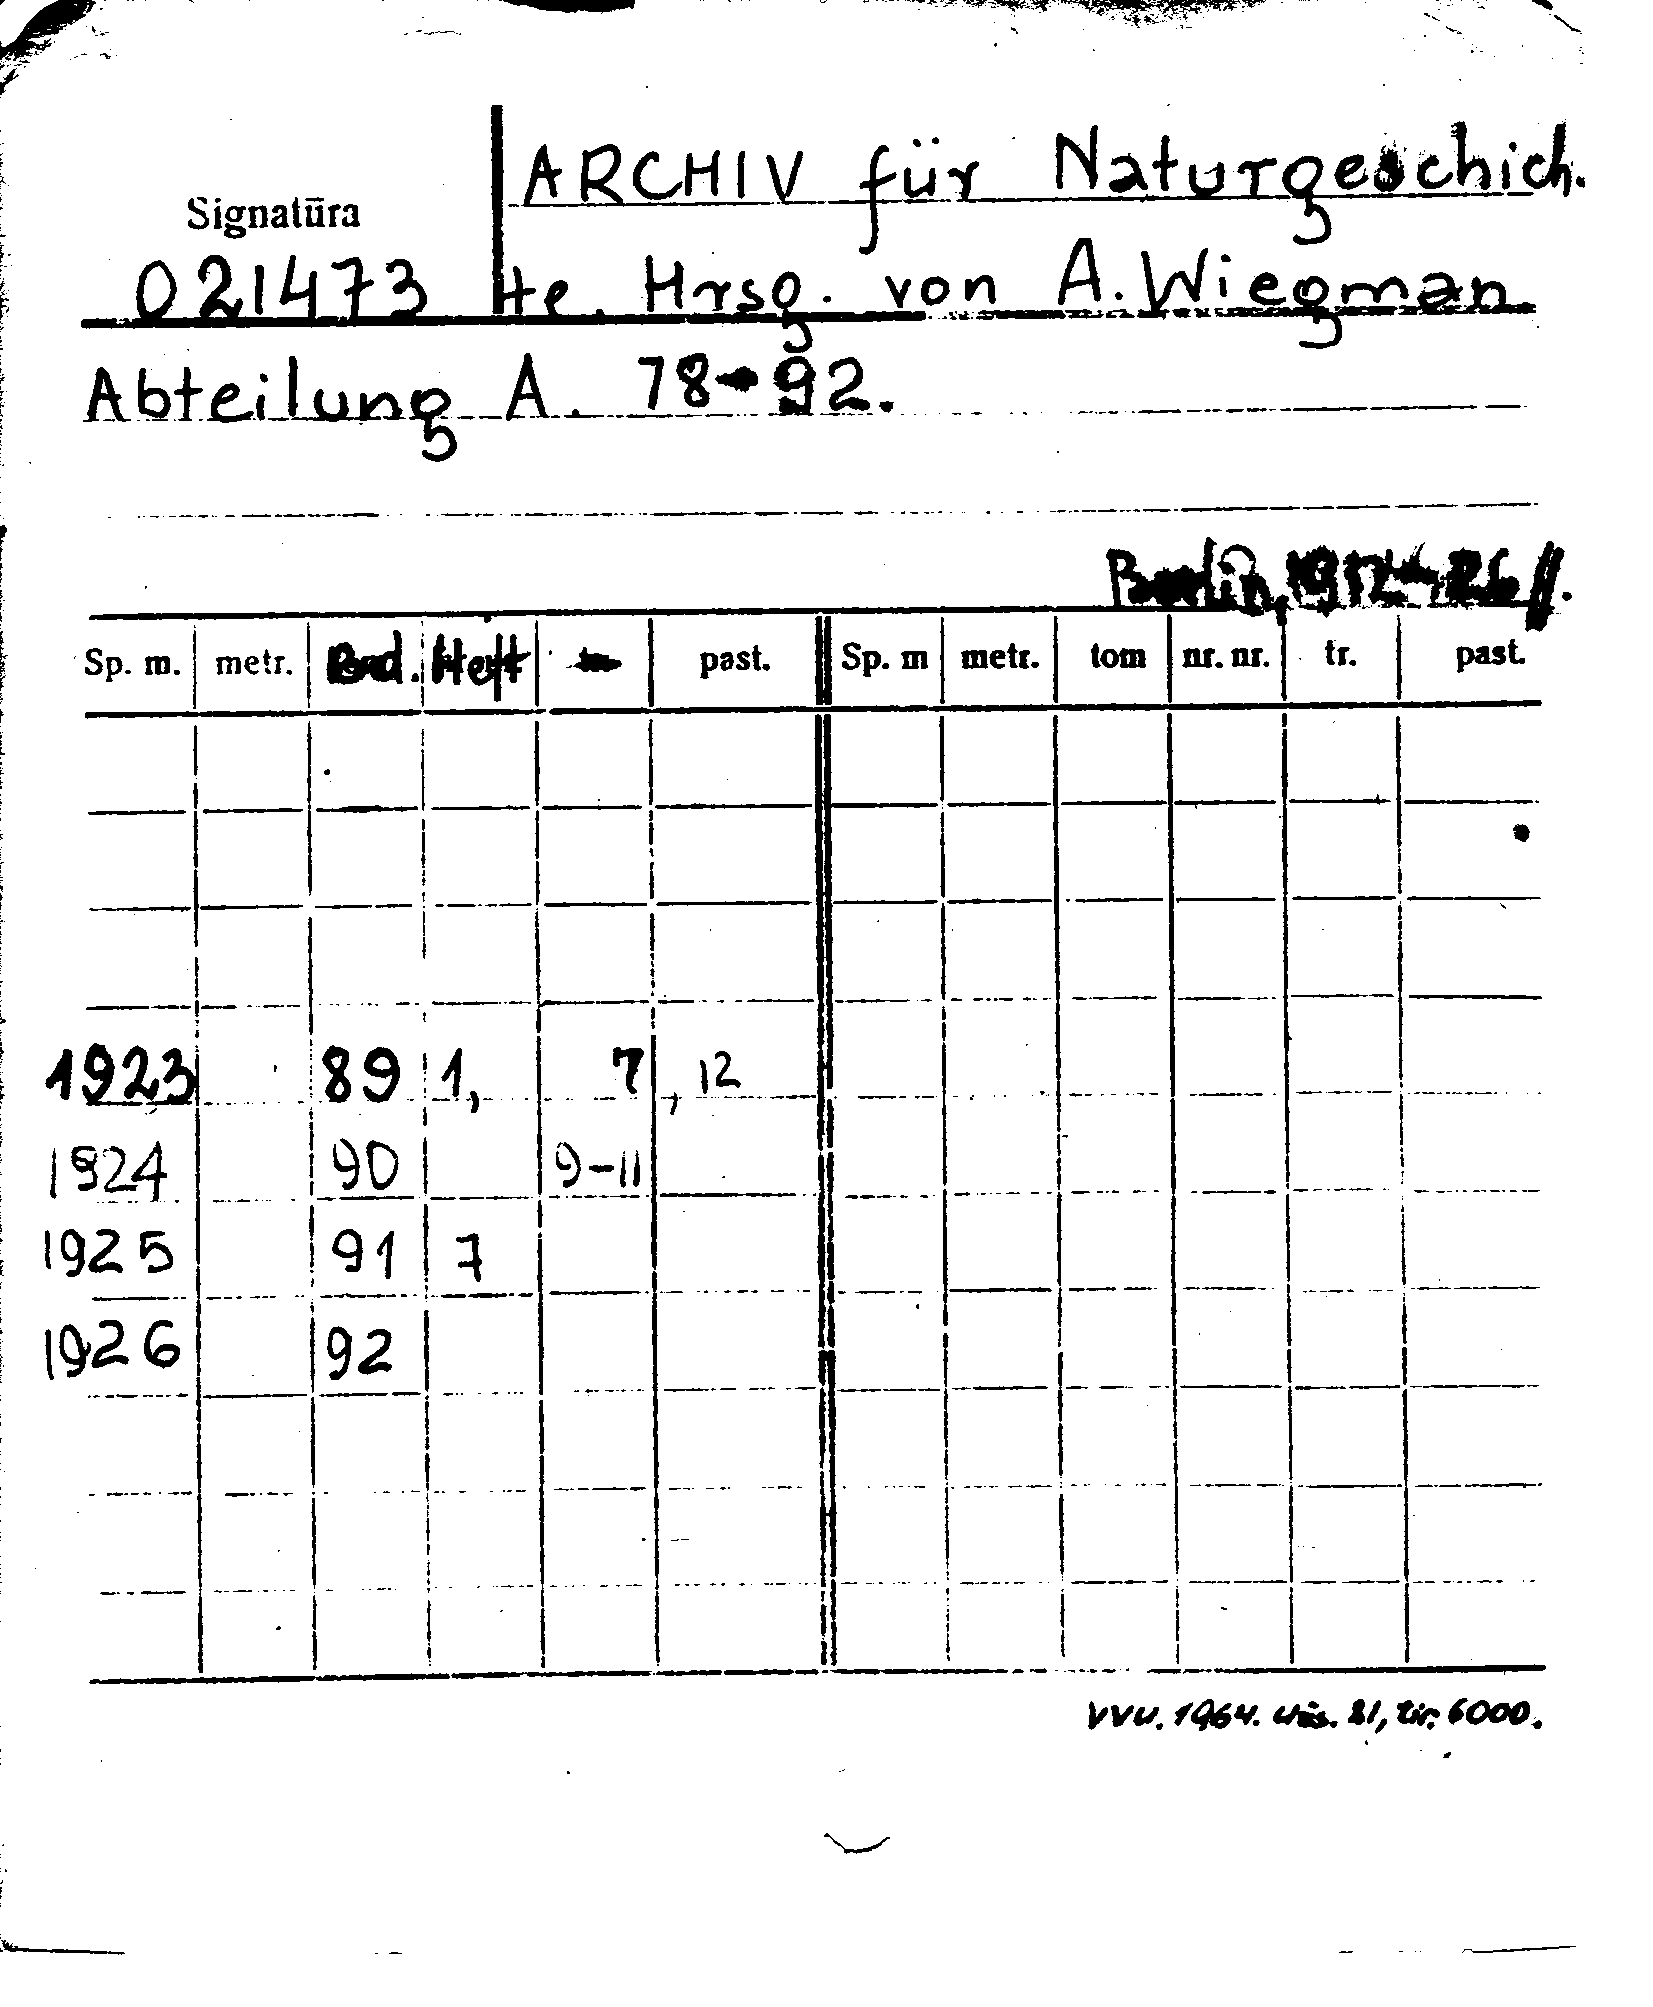 ARCHIV für Naturgeschich.
Signatūra
021473 te. Hrsg. von A. Wiegman.
Abteilung A. 78-92.
Berlin, 1912-26
Sp. m. metr. Bnd. Heft past. Sp. m metr. tom nr. nr. tr. past.
1923 89 1, 7, 12
1924 90 9-11
1925 91 7
1926 92
VVU. 1964. 81, tir. 6000.